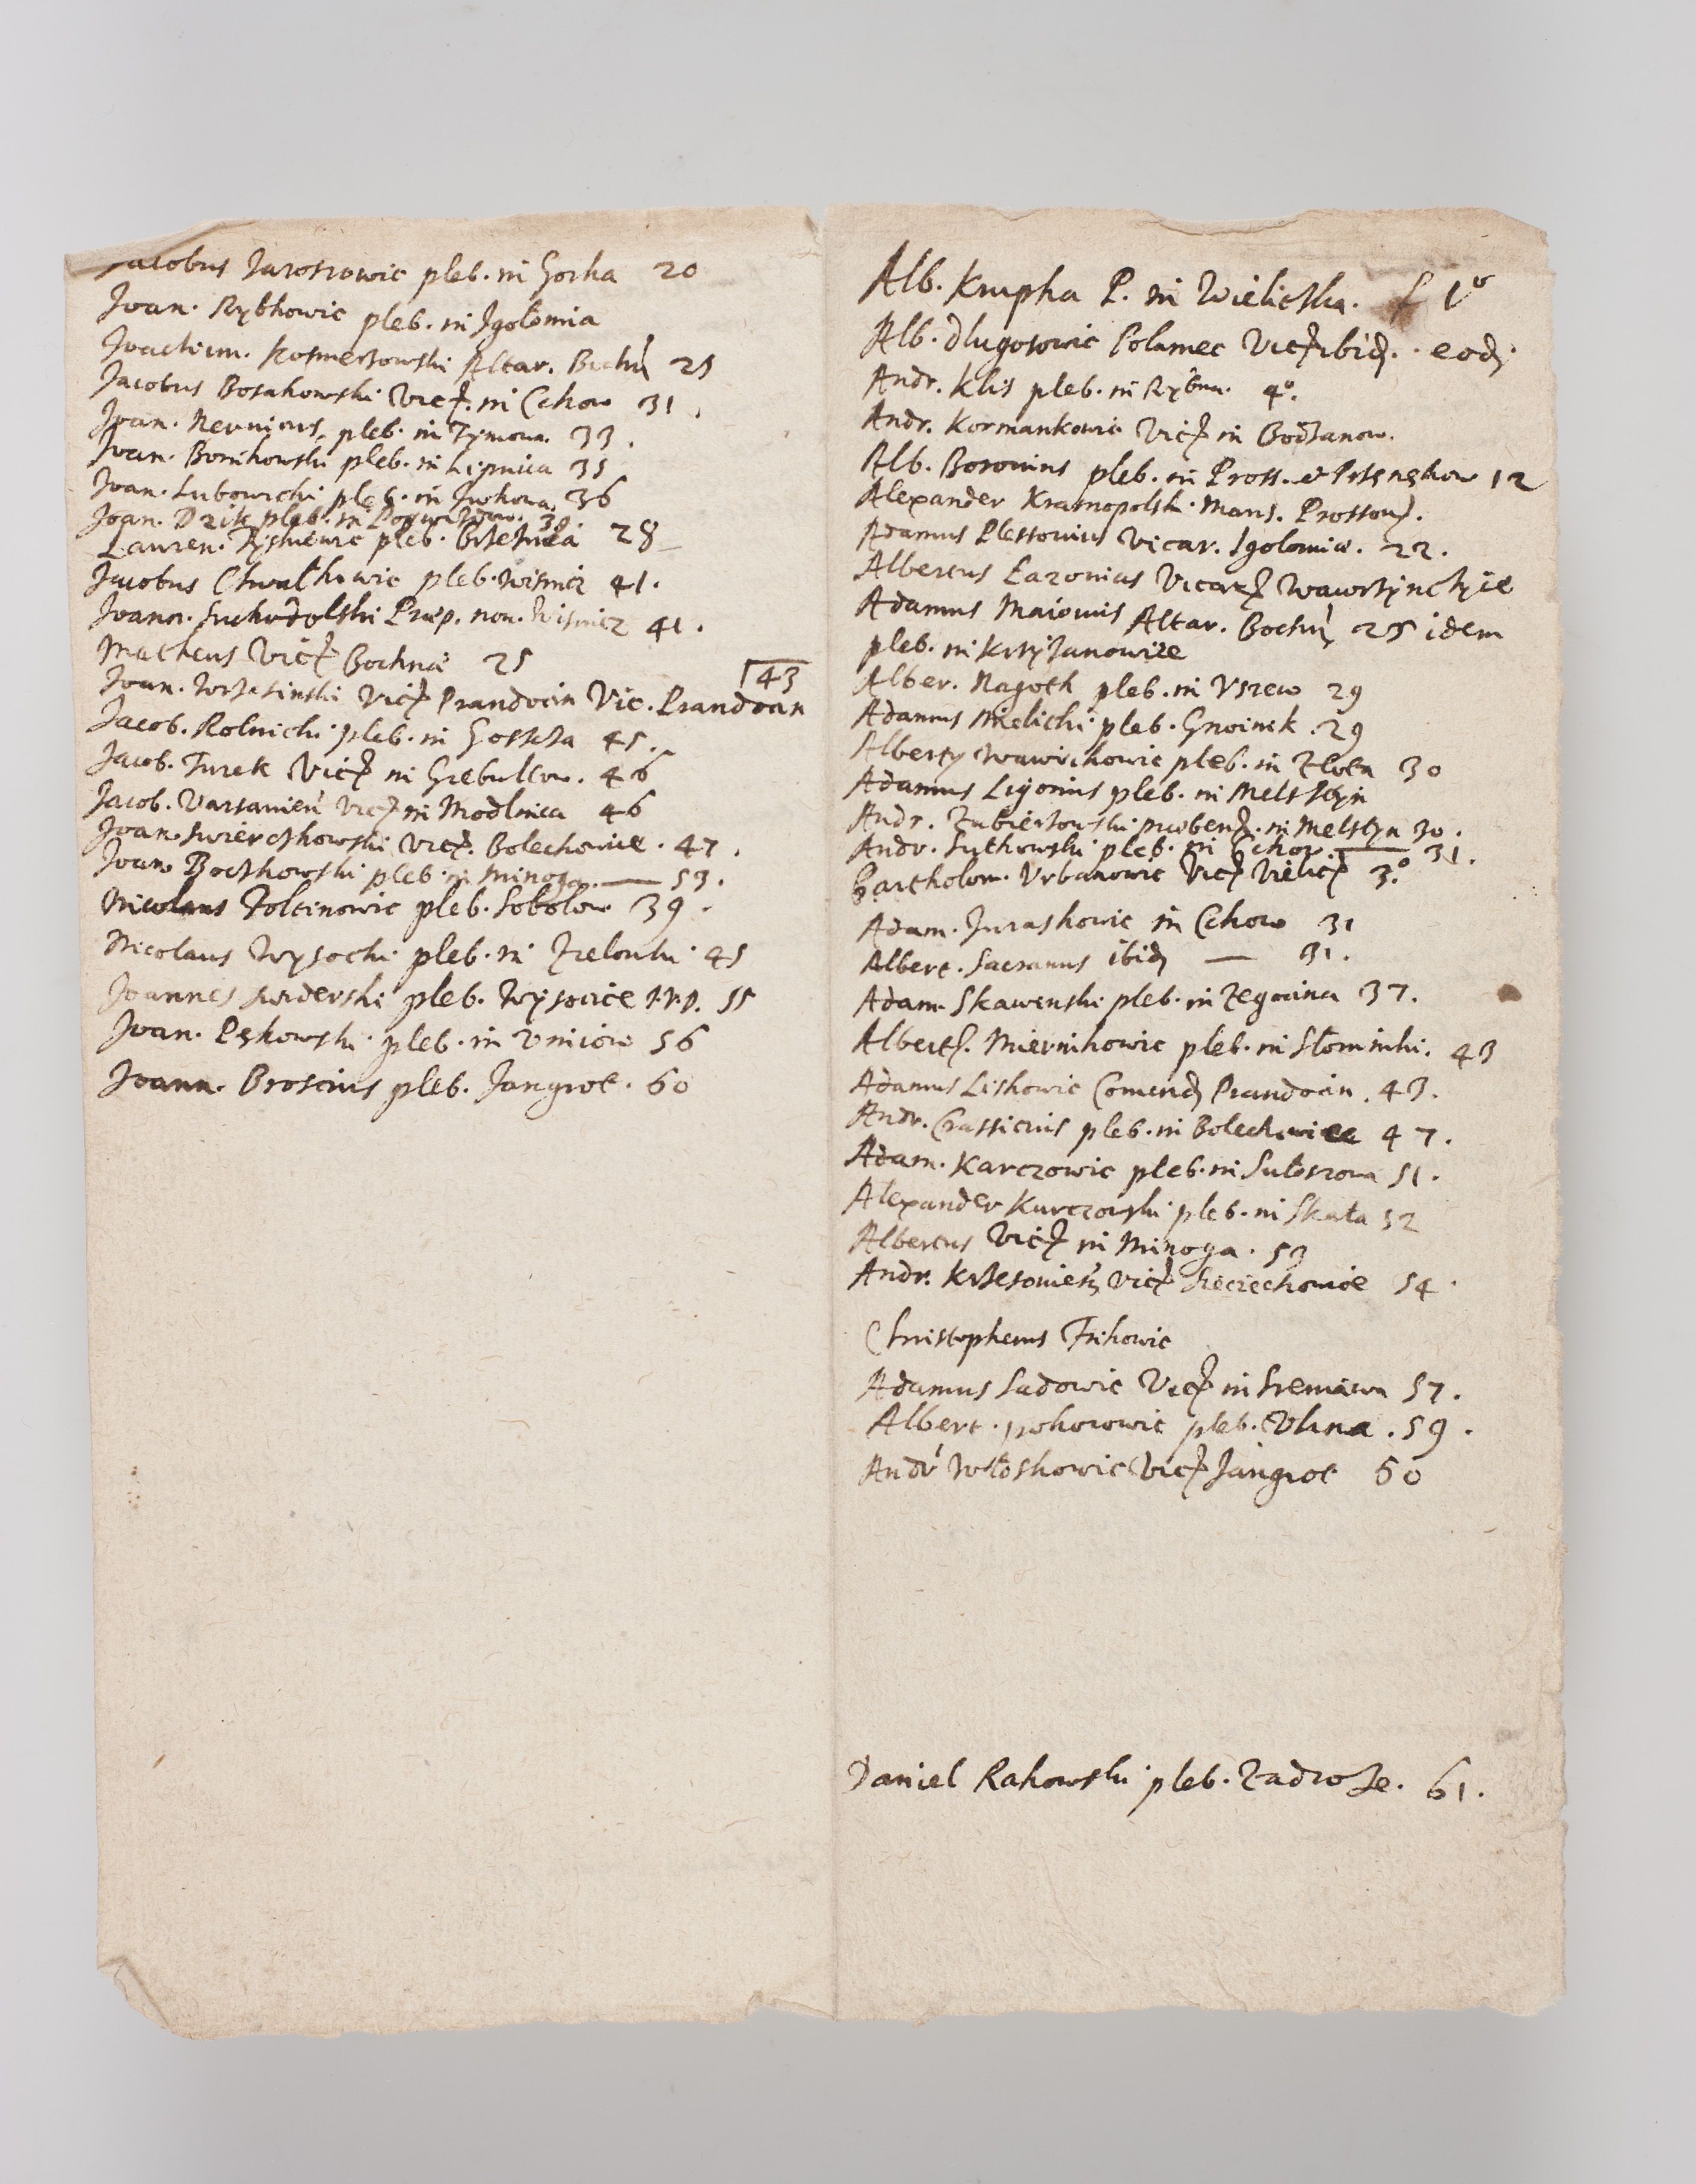 Jacobus Jarostowic pleb. in Gorka 20
Joan. Rybkowic pleb. in Jgołomia
Joachim. Kosmersowski Altar. Bochn 25
Jacobus Bosakowski Vic. in Cchow 31.
Joan. pleb. in Tymowa. 33.
Joan. Bonikowski pleb. in Lipnica 35
Joan. Lubowicki pleb. in Jwkowa. 36
Joan. Dzik pleb. in 38.
Lauren. pleb. Brzeznica 28
Jacobus Chwalkowic pleb. Wisnicz 41.
Joann. Suchodolski Prep. non. Wisnicz 41.
Matheus Vic Bochna 25
43
Joan. Vic Prandocin Vic. Prandocin
Jacob. Rolnicki pleb. in Goszcza 45.
Jacob. Turek Vic in Grebulow. 46
Jacob. Vic in Modlnica 46
Joan. Swierczkowski Vic. Bolechowice. 47.
Joan. Boczkowski pleb. in Minoga. — 53.
Nicolaus Zoltinowic pleb. Sobolow 39.
Nicolaus Wysocki pleb. in Zielonki 45
Joannes Swiderski pleb. Wysocice 55
Joan. Pękowski pleb. in Vniiow 56
Joann. Broscius pleb. Jangrot. 60
Alb. Krupka P. in Wieliczka. f 1º
Alb. Dlugosowic Polamec Vic ibid. eod.
Andr. Klis pleb. in Rybna. 4º.
Andr. Kormankowic Vic in Bodzanow.
Alb. Borowius pleb. in Pross. et 12
Alexander Krasnopolski Mans. Prossow.
Adamus Plessowius Vicar. Igolomia. 22.
Albertus Lazonius Vicar Wawrzynczyce
Adamus Maiowis Altar. Bochn 25 idem
pleb. in Krzyzanowice
Alber. Nagoth pleb. in Vszew 29
Adamus Mielicki pleb. Gnoinik. 29
Albertus Wawrichowic pleb. in Zlota 30
Adamus Ligonius pleb. in Melsztyn
Andr. in Melstyn 30.
Andr. Sutkowski pleb. in Cchow. — 31.
Bartholom. Vrbanowic Vic Vielic 3.º
Adam. Juraskowic in Cchow 31
Albert. Sacranus ibid — 31.
Adam. Skawenski pleb. in Zegocina 37.
Albert. Miernikowic pleb. in Słominki. 43
Adamus Liskowic Comend Prandocin. 43.
Andr. Crassicius pleb. in Bolechowice 47.
Adam. Karczowic pleb. in Sułoszowa 51.
Alexander Kurczowski pleb. in Skała 52
Albertus Vic in Minoga. 53
Andr. Vic Sieciechowice 54
Christopherus Frikowic
Adamus Sadowic Vic in Sreniawa 57.
Albert. pokorowic pleb. Vlina. 59.
Andr Włoskowic Vic Jangrot 60
Daniel Rakowski pleb. Zadroże. 61.